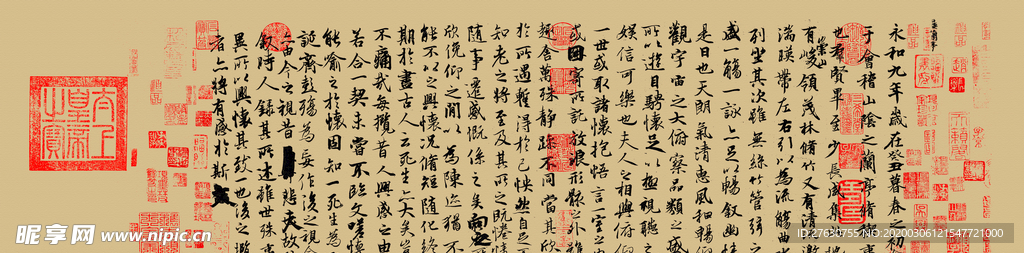 永和九年歲在癸丑暮春之初
于會稽山陰之蘭亭脩禊事
也羣賢畢至少長咸集
有崇山峻領茂林脩竹又有清流激
湍暎帶左右引以為流觴曲水
列坐其次雖無絲竹管弦之
盛一觴一詠上足以暢敘幽情
是日也天朗氣清惠風和暢仰
觀宇宙之大俯察品類之盛
所以遊目騁懷足以極視聽之
娛信可樂也夫人之相與俯仰
一世或取諸懷抱悟言一室之
或因寄所託放浪形骸之外雖
趣舍萬殊靜躁不同當其欣
於所遇暫得於己怏然自足不
知老之將至及其所之既惓情
隨事遷感慨係之矣向之
欣俛仰之閒以為陳迹猶不
能不以之興懷況脩短隨化終
期於盡古人云死生亦大矣豈
不痛哉每攬昔人興感之由
若合一契未嘗不臨文嗟悼
能喻之於懷固知一死生為
誕齊彭殤為妄作後之視今
亦由今之視昔悲夫故
敘時人錄其所述雖世殊事
異所以興懷其致一也後之攬
者亦將有感於斯文
太上皇帝之寶
昵享网 www.nipic.cn
ID:27630755 NO:20200306121547721000